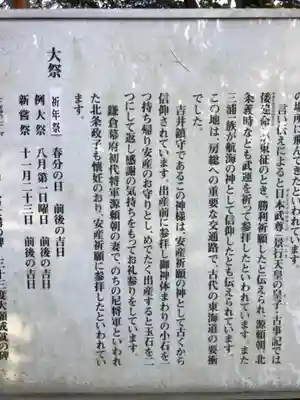 の場所へ飛んできたといわれています
言い伝えによると日本武尊（景行天皇の皇子・古事記では
倭建命）が東征のとき、勝利祈願したと伝えられ、源頼朝、北
条義時なども武運を祈って参拝したといわれています。また
三浦一族が航海の神として信仰したとも伝えられています。
この地は、房総への重要な交通路で、古代の東海道の要衝
でした。
吉井鎮守であるこの神様は、安産祈願の神として古くから
信仰されています。出産前に参拝し御神体まわりの小石を二
つ持ち帰り安産のお守りとし、めでたく出産すると玉石を二
つにして返し感謝の気持ちをもってお礼参りをしています。
鎌倉幕府初代将軍源頼朝の妻で、のちの尼将軍といわれ
た北条政子も懐妊のおり、安産祈願に参拝したといわれてい
ます。
大祭
祈年祭 春分の日 前後の吉日
例大祭 八月第一日曜日 前後の吉日
新嘗祭 十一月二十三日 前後の吉日